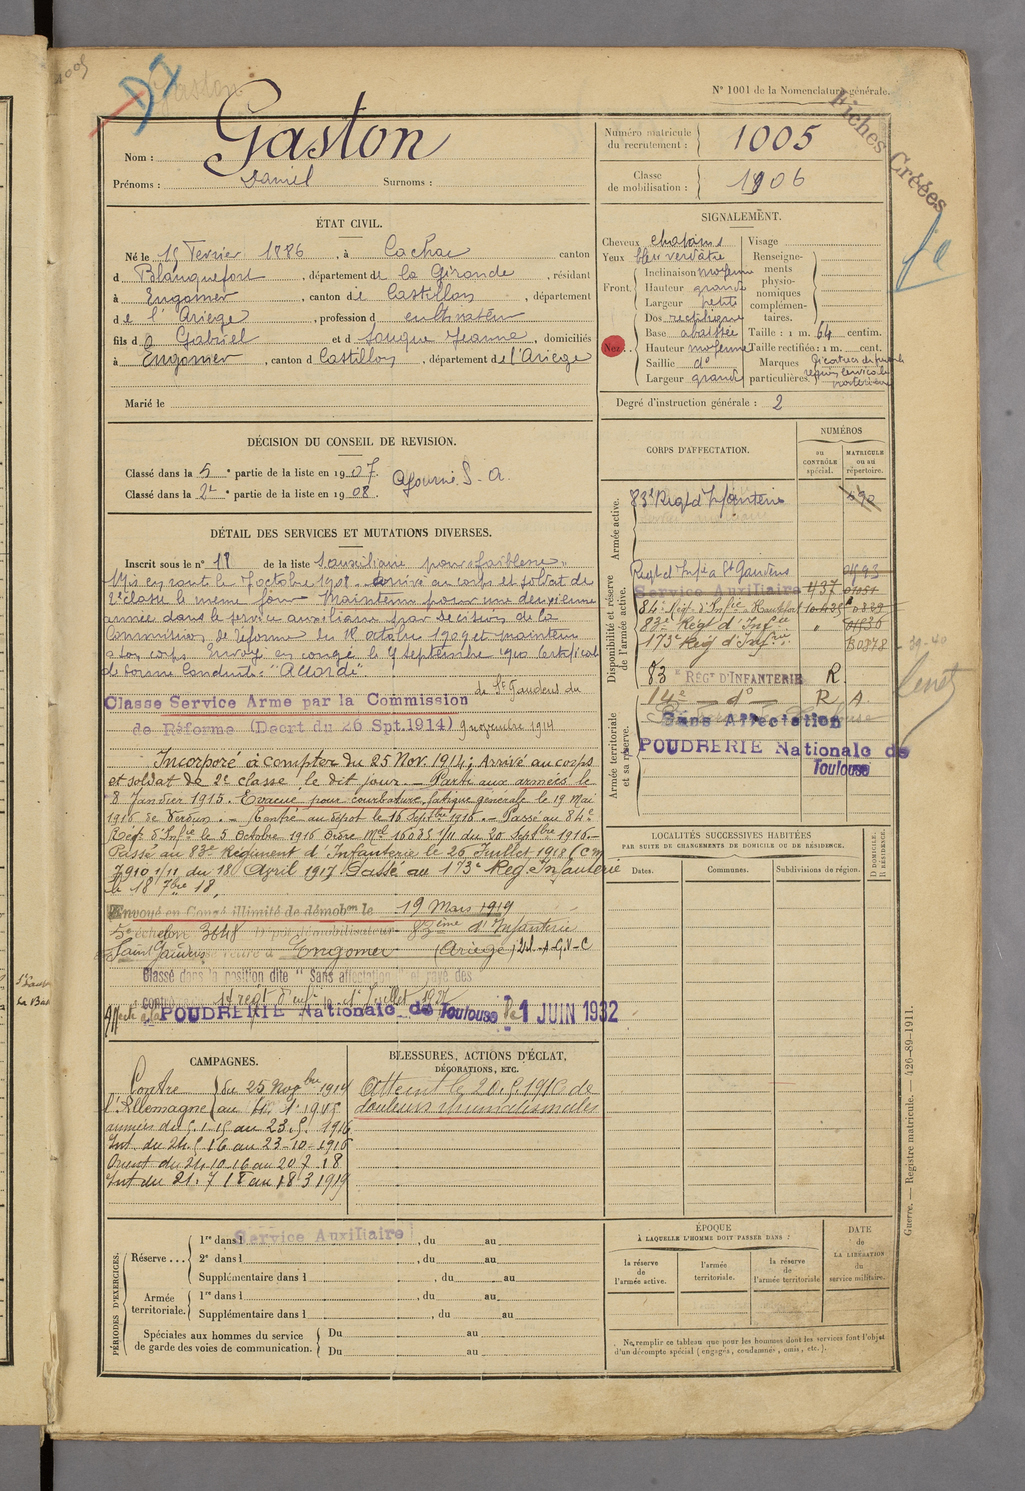 1005
D2
Gaston
N° 1001 de la Nomenclature générale.
Fiches Créées
Nom : Gaston
Prénoms : Daniel Surnoms :
Numéro matricule du recrutement : 1005
Classe de mobilisation : 1906
ÉTAT CIVIL.
Né le 15 Février 1886, à Cachac canton
d Blanquefort, département de la Gironde, résidant
à Engomer, canton de Castillon, département
de l'Ariège, profession d cultivateur
fils d Gabriel et d Souque Jeanne, domiciliés
à Engomer, canton d Castillon, département de l'Ariège
Marié le
SIGNALEMENT.
Cheveux chatains
Yeux bleu verdâtre
Front. Inclinaison moyenne
Hauteur grande
Largeur petite
Nez.. Dos rectiligne
Base abaissée
Hauteur moyenne
Saillie d°
Largeur grande
Visage
Renseignements physionomiques complémentaires.
Taille : 1 m. 64 centim.
Taille rectifiée : 1 m. cent.
Marques particulières.
Degré d'instruction générale : 2
DÉCISION DU CONSEIL DE REVISION.
Classé dans la 5 e partie de la liste en 1907.
Classé dans la 2e partie de la liste en 1908.
Ajourné. S. A.
DÉTAIL DES SERVICES ET MUTATIONS DIVERSES.
Inscrit sous le n° 18 de la liste
"auxiliaire pour faiblesse"
Mis en route le 7 octobre 1908. Arrivé au corps et soldat de
2e classe le même jour. Maintenu pour une deuxième
année dans le service auxiliaire par décision de la
Commission de Réforme du octobre 1909 et maintenu
à son corps. Envoyé en congé le septembre 1910 Certificat
de bonne Conduite: "Accordé".
Classe Service Arme par la Commission de St Gaudens du
de Réforme (Decrt du 26 Spt. 1914) 9 novembre 1914
Incorporé à compter du 25 Nov. 1914; Arrivé au corps
et soldat de 2e classe le dit jour. Parti aux armées le
8 Janvier 1915. Evacué pour courbature, fatigue générale le 19 Mai
1916 de Verdun. Rentré au dépôt le 16 Septbre 1916. Passé au 84e
Régt d'Infie le 5 Octobre 1916 Ordre Mel 16035 1/11 du 30 Septbre 1916.
Passé au 83e Régiment d'Infanterie le 26 Juillet 1918 (C M
7910 1/11 du 18 Avril 1917) Passé au 173e Reg. Infanterie
le 18 7bre 18.
Envoyé en Congé illimité de démobon le 19 Mars 1919
5e échelon 3648 Dépôt démobilisateur 83ème d'Infanterie
Saint Gaudens se retire à Engomer (Ariège)
Classé dans la position dite "Sans affectation" et rayé des
POUDRERIE Nationale de Toulouse le 1 JUIN 1932
CORPS D'AFFECTATION.
NUMÉROS
au CONTRÔLE spécial.
MATRICULE ou au répertoire.
Armée active.
83e Régt d'Infanterie
Disponibilité et réserve de l'armée active.
Régt d'Infie à St Gaudens
Service Auxiliaire 437
84e Régt d'Infie
83e Régt d'Infie
173e Rég d'Infrie B0378
83e RÉGt D'INFANTERIE R.
14e d° R A
Armée territoriale et sa réserve.
Sans Affectation
POUDRERIE Nationale de
Toulouse
LOCALITÉS SUCCESSIVES HABITÉES
PAR SUITE DE CHANGEMENTS DE DOMICILE OU DE RÉSIDENCE.
Dates. Communes. Subdivisions de région.
D DOMICILE. R RÉSIDENCE.
CAMPAGNES.
Contre l'Allemagne
du 25 Novbre 1914
armées du 8.1.15 au 23.5.1916
Int. du 24.5.16 au 23-10-1916
Orient du 24.10.16 au 20.7.18
Int du 21.7.18 au 18.3.1919
BLESSURES, ACTIONS D'ÉCLAT,
DÉCORATIONS, ETC.
Atteint le 20.5.1916 de
douleurs rhumatismales
PÉRIODES D'EXERCICES.
Réserve... 1re dans l Service Auxiliaire, du au
2e dans l, du au
Supplémentaire dans l, du au
Armée territoriale. 1re dans l, du au
Supplémentaire dans l, du au
Spéciales aux hommes du service
de garde des voies de communication.
Du au
Du au
ÉPOQUE
À LAQUELLE L'HOMME DOIT PASSER DANS :
la réserve de l'armée active.
l'armée territoriale.
la réserve de l'armée territoriale
DATE de LA LIBÉRATION du service militaire.
Ne remplir ce tableau que pour les hommes dont les services font l'objet
d'un décompte spécial (engagés, condamnés, omis, etc.).
Guerre. — Registre matricule. — 426-89-1911.